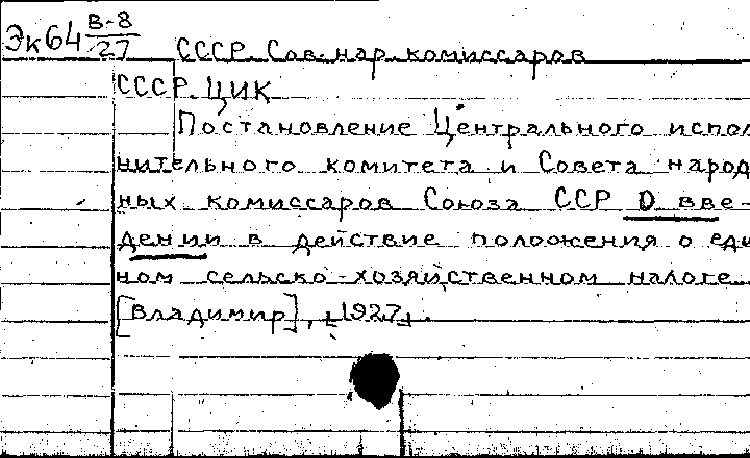 Эк64 В-8/27
СССР. Сов. нар. комиссаров
СССР. ЦИК
Постановление Центрального испол
нительного комитета и Совета народ
ных комиссаров Союза ССР О вве-
дении в действие положения о еди
ном сельско-хозяйственном налоге.
[Владимир], [1927].